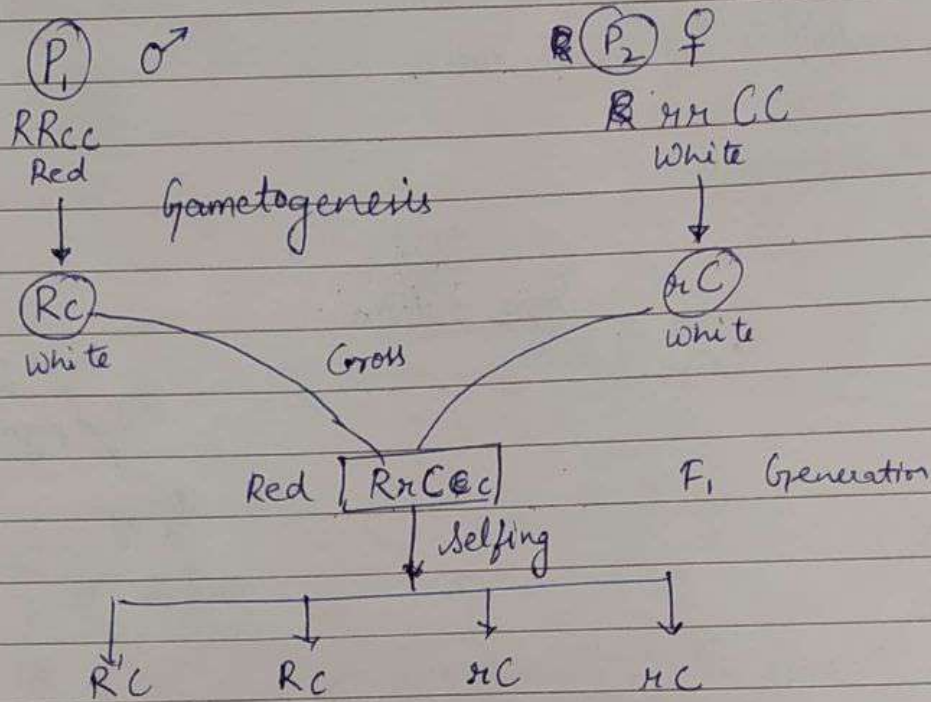 P₁ ♂ P₂ ♀
RRcc rr CC
Red White
Gametogenesis
Rc rC
White White
Cross
Red RrCc F₁ Generation
Selfing
RC Rc rC rc